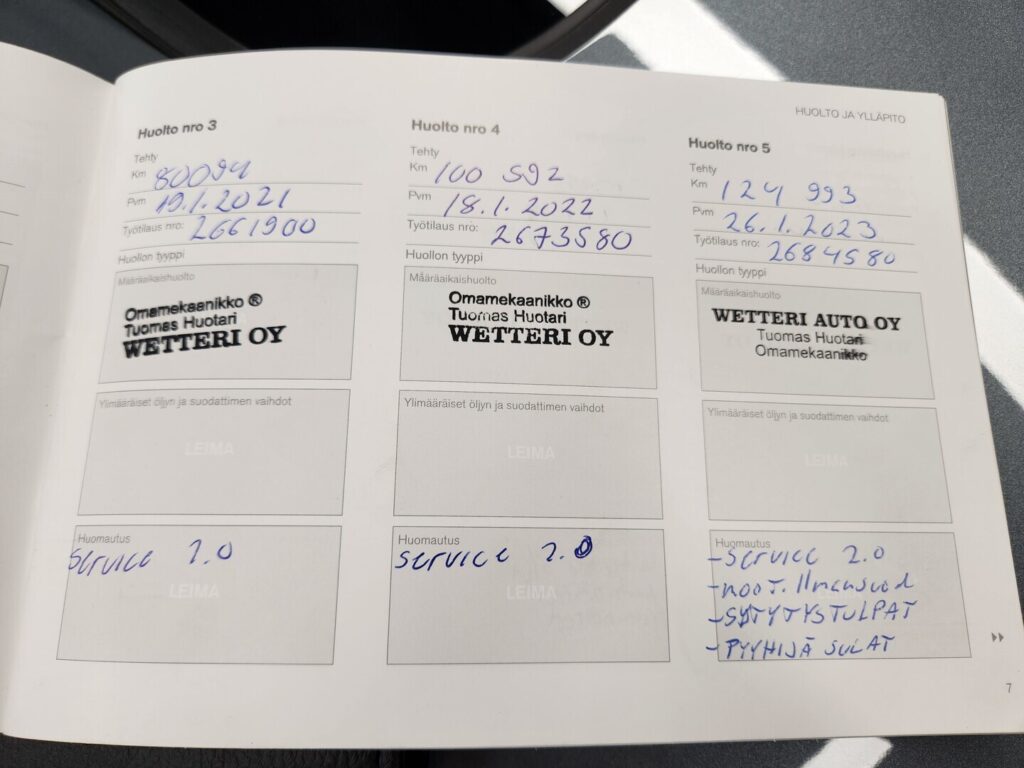 HUOLTO JA YLLÄPITO
Huolto nro 3
Tehty
Km 80094
Pvm 19.1.2021
Työtilaus nro: 2661900
Huollon tyyppi
Määräaikaishuolto
Omamekaanikko ®
Tuomas Huotari
WETTERI OY
Ylimääräiset öljyn ja suodattimen vaihdot
LEIMA
Huomautus
service 2.0
LEIMA
Huolto nro 4
Tehty
Km 100 592
Pvm 18.1.2022
Työtilaus nro: 2673580
Huollon tyyppi
Määräaikaishuolto
Omamekaanikko ®
Tuomas Huotari
WETTERI OY
Ylimääräiset öljyn ja suodattimen vaihdot
LEIMA
Huomautus
service 2.0
LEIMA
Huolto nro 5
Tehty
Km 124 993
Pvm 26.1.2023
Työtilaus nro: 2684580
Huollon tyyppi
Määräaikaishuolto
WETTERI AUTO OY
Tuomas Huotari
Omamekaanikko
Ylimääräiset öljyn ja suodattimen vaihdot
LEIMA
Huomautus
-service 2.0
-moot. Ilmansuod
-SYTYTYSTULPAT
-PYYHIJÄ SULAT
LEIMA
7